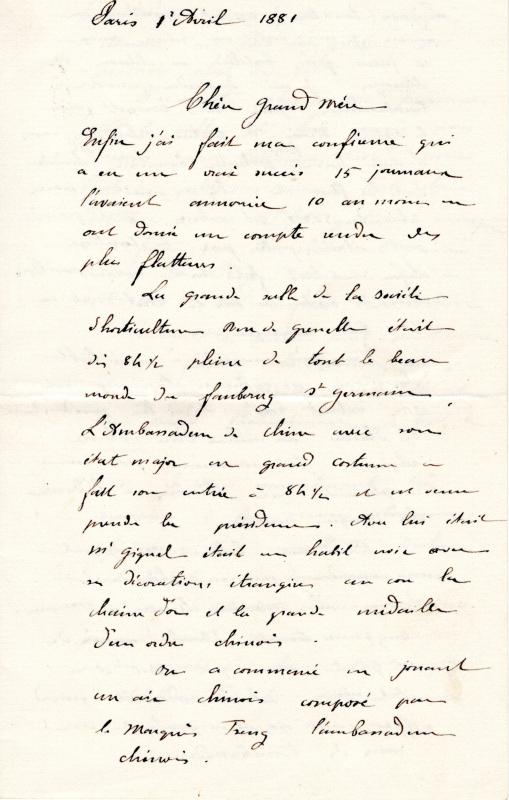 Paris 1r Avril 1881
Chère grand mère
Enfin j'ai fait ma conférence qui
a eu un vrai succès 15 journaux
l'avaient annoncé 10 au moins en
ont donné un compte rendu des
plus flatteurs.
La grande salle de la société
d'horticulture Rue de grenelle était
dès 8h 1/2 pleine de tout le beau
monde du faubourg St germain
L'Ambassadeur de chine avec son
état major en grand costume a
fait son entrée à 8h 1/2 et est venu
prendre la présidence. Avec lui était
Mr giquel était en habit noir avec
ses décorations étrangères au cou la
chaine d'or et la grande médaille
d'un ordre chinois.
On a commencé en jouant
un air chinois composé par
le Marquis Tseng l'ambassadeur
chinois.